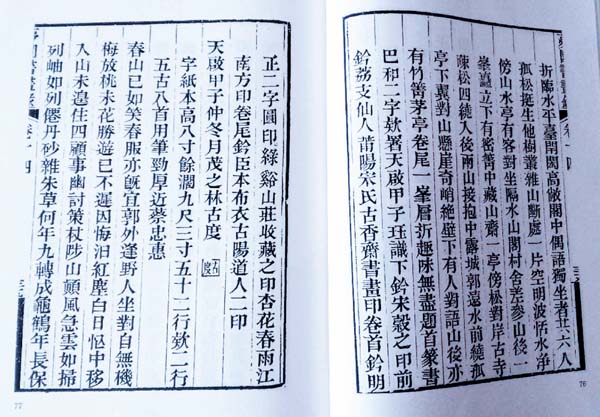 折臨水平臺閎高敞閣中偶語獨坐者五六人
孤松挺生他樹叢雜山斷處一片空明波恬水淨
傍山水亭有客對坐隔水山閣村舍差參山後一
峯矗立下有密篁中藏山齋一亭傍松對岸古寺
疎松四繞入後兩山接抱中露城郭遠水前繞孤
亭下翼對山懸崖奇峭絕壁下有人對語山後亦
有竹篁茅亭卷尾一峯層折趣味無盡題首篆書
巴和二字欵署天啟甲子珏識下鈐宋瑴之印前
鈐荔支仙人莆陽宋氏古香齋書畫印卷首鈐明
卷十四
76
正二字圓印綠谿山莊收藏之印杏花春雨江
南方印卷尾鈐臣本布衣古陽道人二印
天啟甲子仲冬月茂之林古度 古度
字紙本高八寸餘濶九尺三寸五十二行欵二行
五古八首用筆勁厚近蔡忠惠
春山已如笑春服亦旣宜郭外逢野人坐對自無機
梅放桃未花勝遊已不遲因悔汨紅塵白日忽中移
入山未遑住四顧事幽討策杖陟山顛風急雲如掃
列岫如列僊丹砂雜朱草何年九轉成龜鶴年長保
卷十四
77